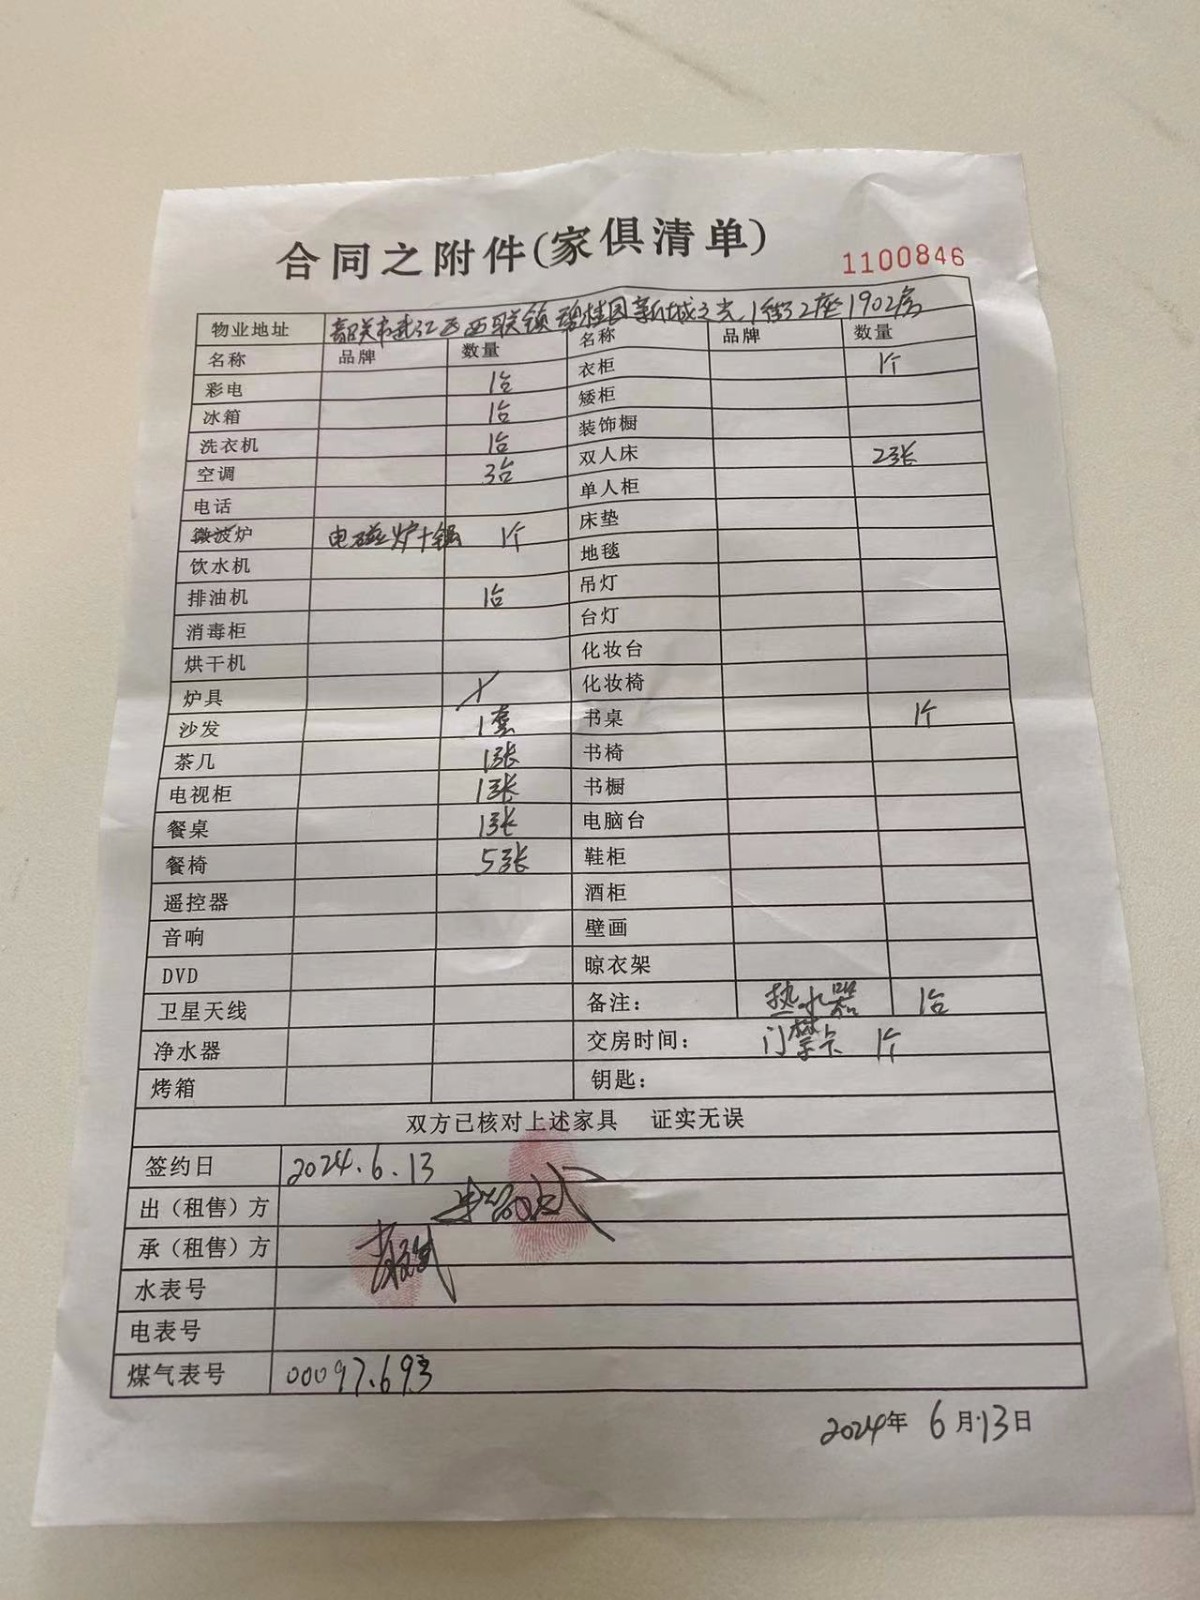 合同之附件(家俱清单)
1100846
物业地址 韶关市武江区西联镇碧桂园新城之光1街2座1902房
名称 品牌 数量 名称 品牌 数量
彩电 1台 衣柜 1个
冰箱 1台 矮柜
洗衣机 1台 装饰橱
空调 3台 双人床 2张
电话 单人柜
微波炉 电磁炉+锅 1个 床垫
饮水机 地毯
排油机 1台 吊灯
消毒柜 台灯
烘干机 化妆台
炉具 化妆椅
沙发 1套 书桌 1个
茶几 1张 书椅
电视柜 1张 书橱
餐桌 1张 电脑台
餐椅 5张 鞋柜
遥控器 酒柜
音响 壁画
DVD 晾衣架
卫星天线 备注: 热水器 1台
净水器 交房时间: 门禁卡 1个
烤箱 钥匙:
双方已核对上述家具 证实无误
签约日 2024.6.13
出（租售）方
承（租售）方
水表号
电表号
煤气表号 00097.693
2024年 6月13日